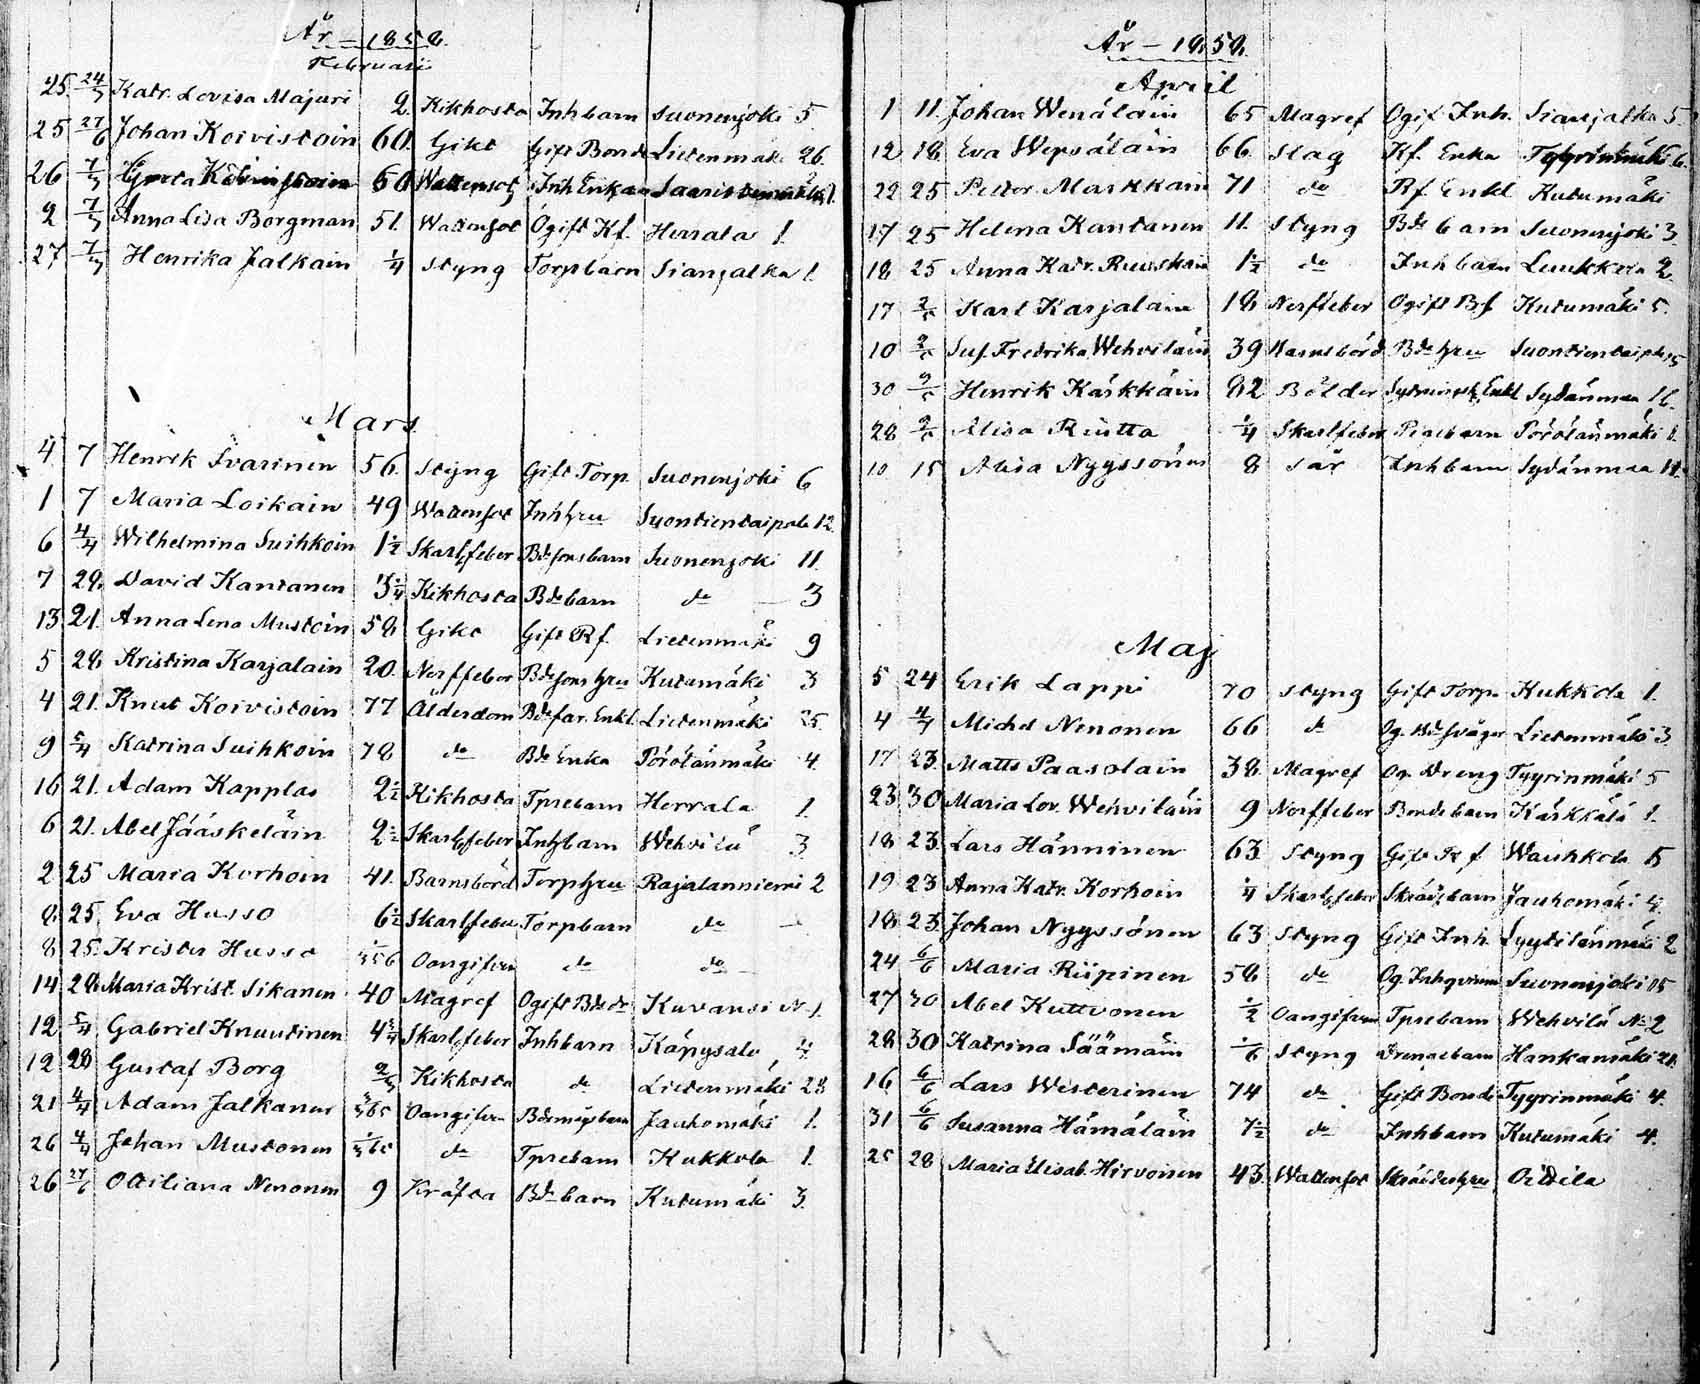 År – 1858.
Februarii
25. 24/3 Katr. Lovisa Majuri 2. Kikhosta Inhbarn Suonenjoki 5.
25 27/6 Johan Koivistoin 60. Gikt Gift Bonde Lietenmäki 26.
26 7/3 Greta 60 Wattensot Inh Enka
2 7/3 Anna Lisa Borgman 51. Wattensot Ogift Kf. Herrala 1.
27 7/3 Henrika Jalkain 1/4 Styng Torpbarn Sianjalka 1.
Mars
4 7 Henrik Ivarinen 56. Styng Gift Torp. Suonenjoki 6
1 7 Maria Loikain 49 Wattensot Inhhru Suontientaipale 12.
6 4/4 Wilhelmina Suihkoin 1½ Skarlfeber Bdesonsbarn Suonenjoki 11.
7 28. David Kantanen 3¼ Kikhosta Bdebarn do — 3
13 21. Anna Lena Mustoin 58 Gikt Gift Rf. Lietenmäki 9
5 28. Kristina Karjalain 20. Nerffeber Bdesons hru Kutumäki 3
4 21. Knut Koivistoin 77 Ålderdom Bdefar. Enkl. Lietenmäki 25.
9 5/4 Katrina Suihkoin 78 do Bde Enka Pörölänmäki 4.
16 21. Adam Kapplas 2½ Kikhosta Tprebarn Herrala 1.
6 21. Abel Jääskeläin 2½ Skarlfeber Inhbarn Wehvilä 3.
2 25 Maria Korhoin 41. Barnsbörd Torphru Rajalanniemi 2
8. 25. Eva Husso 6½ Skarlfeber Torpbarn do —
8 25. Krister Husso Oangifven do do —
14 28. Maria Krist. Sikanen 40 Magref Ogift Bdedr Kuvansi N. 1.
12 5/4 Gabriel Knuutinen 4¾ Skarlfeber Inhbarn Käpysalo 4.
12 28 Gustaf Borg Kikhosta do Lietenmäki 28
21 4/4 Adam Jalkanen Oangifven Jauhomäki 1.
26 4/4 Johan Mustonen do Tprebarn Kukkola 1.
26 27/6 Ottiliana Nenonen 9 Kräfta Bdebarn Kutumäki 3.
År – 1858.
April
1 11. Johan Wenäläin 65 Magref Ogif. Inh. Sianjalka 5.
12 18 Eva Wepsäläin 66. Slag Kf. Enka Tyyrinmäki 6.
22 25 Petter Markkain 71 do Rf Enkl Kutumäki
17 25 Helena Kantanen 11. Styng Bde barn Suonenjoki 3.
18 25 Anna Katr. Ruuskain 1½ do Inhbarn Luukkola 2.
17 2/5 Karl Karjalain 18 Nerffeber Ogift Bf Kutumäki 5.
10 2/5 Sus. Fredrika Wehviläin 39 Barnsbörd Bdehru Suontientaipale 15
30 9/5 Henrik Kärkkäin 82 Bölder Enkl Sydänmaa 16.
28 9/5 Alisa Riutta ¼ Skarlfeber Pigebarn Pörölänmäki 1.
10 15 Alisa Nyyssönen 8 Sår Inhbarn Sydänmaa 11.
Maj
5 24 Erik Lappi 70 Styng Gift Torp. Kukkola 1.
4 4/7 Michel Nenonen 66 do Og. Bdesvåger Lietenmäki 3.
17 23. Matts Paasolain 38. Magref Og. Dreng Tyyrinmäki 5
23 30 Maria Lov. Wehviläin 9 Nerffeber Bondebarn Kärkkälä 1.
18 23. Lars Hänninen 63. Styng Gift Rf Waihkola 5
19 23 Anna Katr. Korhoin ¼ Skarlfeber Skräd.barn Jauhomäki 4.
18 23. Johan Nyyssönen 63 Styng Gift Inh. Lyytilänmäki 2
24 6/6 Maria Riipinen 58 do Og. Inhqvinna Suonenjoki 15
27 30 Abel Kuttvonen ½ Oangifven Tprebarn Wehvilä No 2
28 30 Katrina Säämäin 1/6 Styng Drengebarn Hankamäki 20.
16 6/6 Lars Westerinen 74 do Gift Bonde Tyyrinmäki 4.
31 6/6 Susanna Hämäläin 7½ do Inhbarn Kutumäki 4.
25 28 Maria Elisab. Hirvonen 43. Wattensot Skräddarhru Oittila